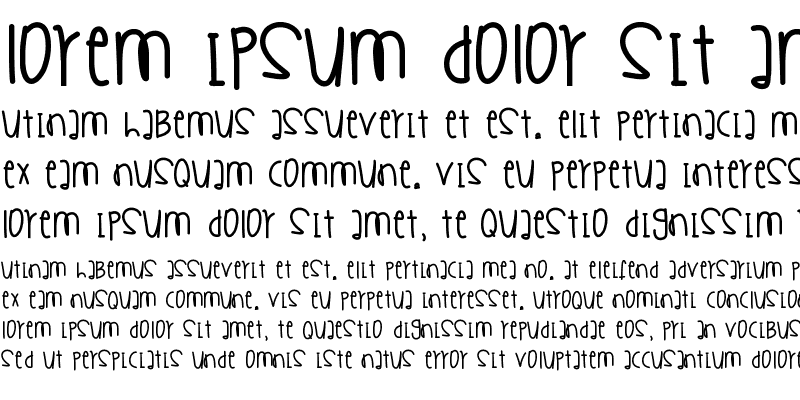 lorem ipsum dolor sit an
utinam habemus assueverit et est. elit pertinacia m
ex eam nusquam commune. vis eu perpetua interess
lorem ipsum dolor sit amet, te quaestio dignissim
utinam habemus assueverit et est. elit pertinacia mea no. at eleifend adversarium p
ex eam nusquam commune. vis eu perpetua interesset. utroque nominati conclusio
lorem ipsum dolor sit amet, te quaestio dignissim repudiandae eos, pri an vocibus
sed ut perspiciatis unde omnis iste natus error sit voluptatem accusantium dolore